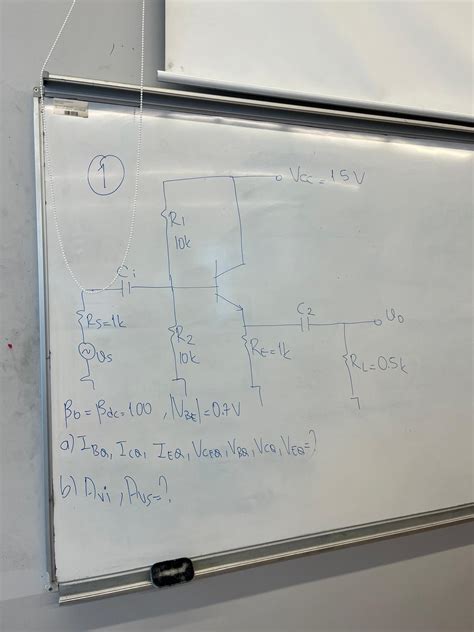 1
VCC=15V
R1
10k
C1
RS=1k
R2
10k
C2
υo
υs
RE=1k
RL=0.5k
βo=βdc=100, |VBE|=0.7V
a) IBQ, ICQ, IEQ, VCEQ, VBQ, VCQ, VEQ=?
b) Avi, Avs=?